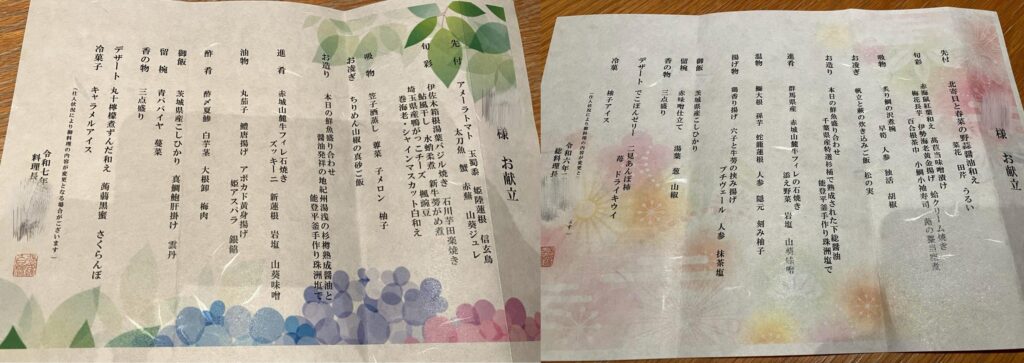 様 お献立
先付 アメーラトマト 玉蜀黍 姫陸蓮根 信玄鳥
太刀魚 蟹 赤蕪 山葵ジュレ
旬彩 伊佐木箱根湯葉バジル焼き 石川芋田楽焼き
鮎風干し 水蛸柔煮 新牛蒡がめ煮
埼玉県産鴨がっこチーズ 楓豌豆
巻海老・シャインマスカット白和え
吸物 笠子酒蒸し 蓴菜 子メロン 柚子
お凌ぎ ちりめん山椒の真砂ご飯
お造り 本日の鮮魚盛り合わせ
醤油発祥の地紀州湯浅の杉樽熟成醤油と
能登平釜手作り珠洲塩で
進肴 赤城山麓牛フィレ石焼き
ズッキーニ 新蓮根 岩塩 山葵味噌
油物 丸茄子 鱧唐揚げ アボカド真薯揚げ
姫アスパラ 銀餡
酢肴 酢〆夏鯵 白芋茎 大根卸 梅肉
御飯 茨城県産こしひかり 真鯛鮑肝掛け 雲丹
留椀 青パパイヤ 蔓菜
香の物 三点盛り
デザート 丸十檸檬煮ずんだ和え 蒟蒻黒蜜 さくらんぼ
冷菓子 キャラメルアイス
(仕入状況により御料理の内容が変更となる場合がございます)
令和七年
料理長
様 お献立
先付 北寄貝と春菜の野蒜醤油和え
菜花 田芹 うるい
旬彩 赤海鼠紅葉和え 萵苣当味噌漬け 蛤クリーム焼き
梅花長芋 伊勢海老黄金揚げ 蕗の粟当座煮
百合根茶巾 小鯛小袖寿司
吸物 炙り鯛の沢煮椀
早筍 人参 独活 胡椒
お凌ぎ 帆立と蕨の炊き込みご飯 松の実
お造り 本日の鮮魚盛り合わせ
千葉県産厳選杉桶で熟成された下総醤油
能登平釜手作り珠洲塩で
進肴 群馬県産 赤城山麓牛フィレの石焼き
添え野菜 岩塩 山葵味噌
温物 鰤大根 孫芋 蛇籠蓮根 人参 隠元 刻み柚子
揚げ物 鶏香り揚げ 六子と牛蒡の挟み揚げ
プチヴェール 人参 抹茶塩
御飯 茨城県産こしひかり
留椀 赤味噌仕立て 湯葉 葱 山椒
香の物 三点盛り
デザート 二見あんぽ柿
でこぽんゼリー 苺 ドライキウイ
冷菓 柚子アイス
令和六年
総料理長